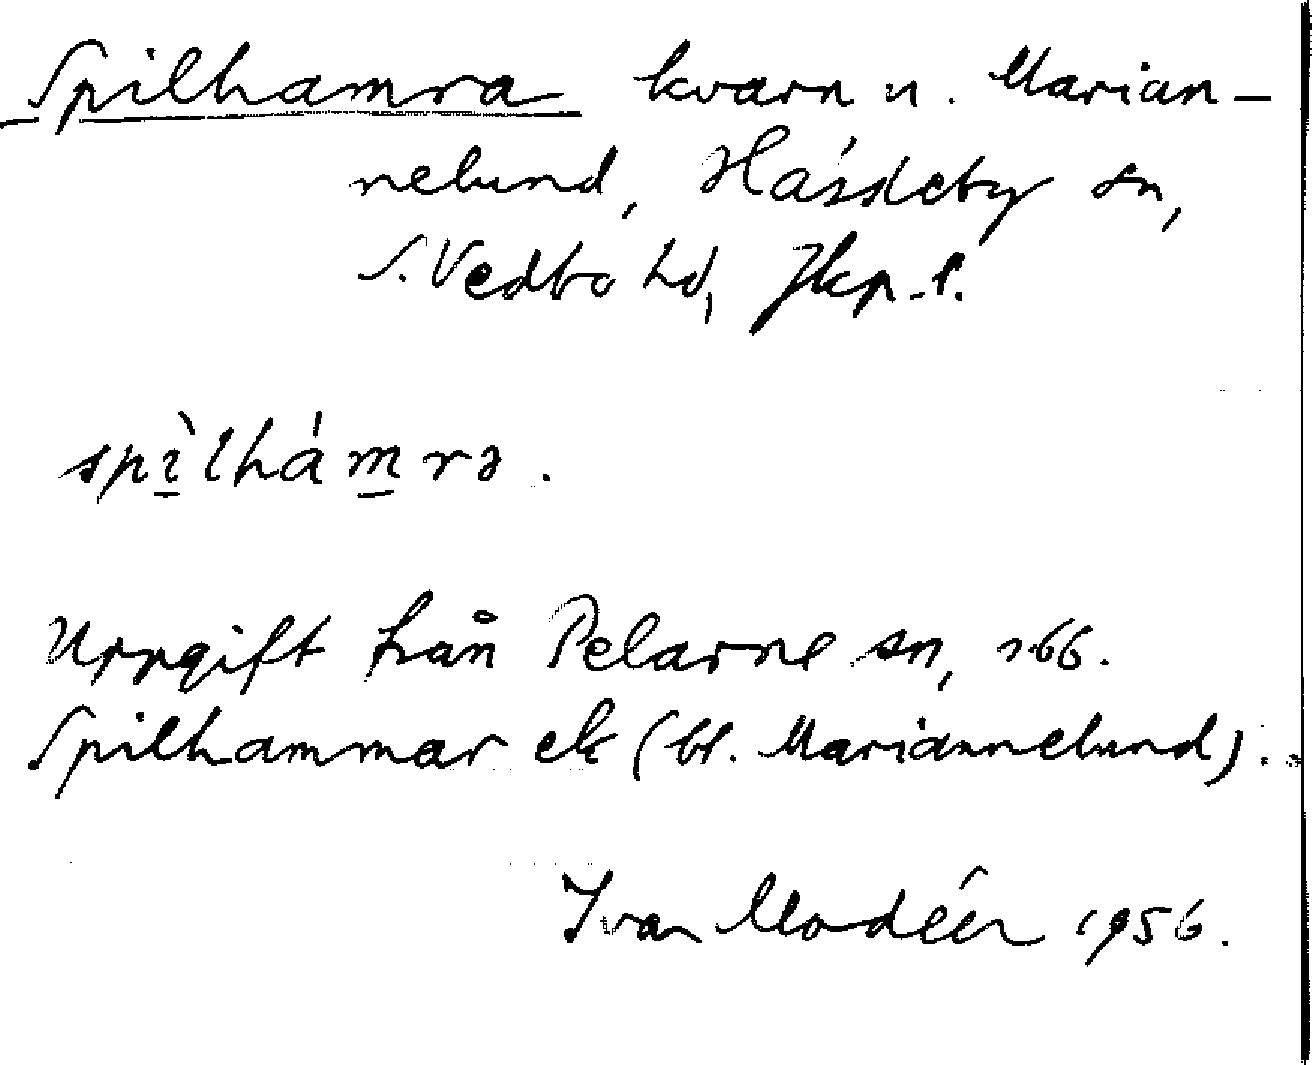 Spilhamra kvarn n. Marian-
nelund, Hässleby sn,
S. Vedbo hd, Jkp. l.
spìlhámrə.
Uppgift från Pelarne sn,
Spilhammar ek (bl. Mariannelund).
Ivar Modéer 1956.